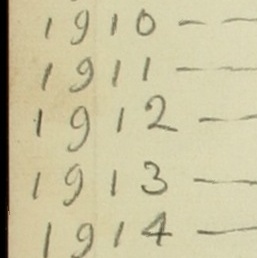 1910 — —
1911 — —
1912 — —
1913 — —
1914 — —